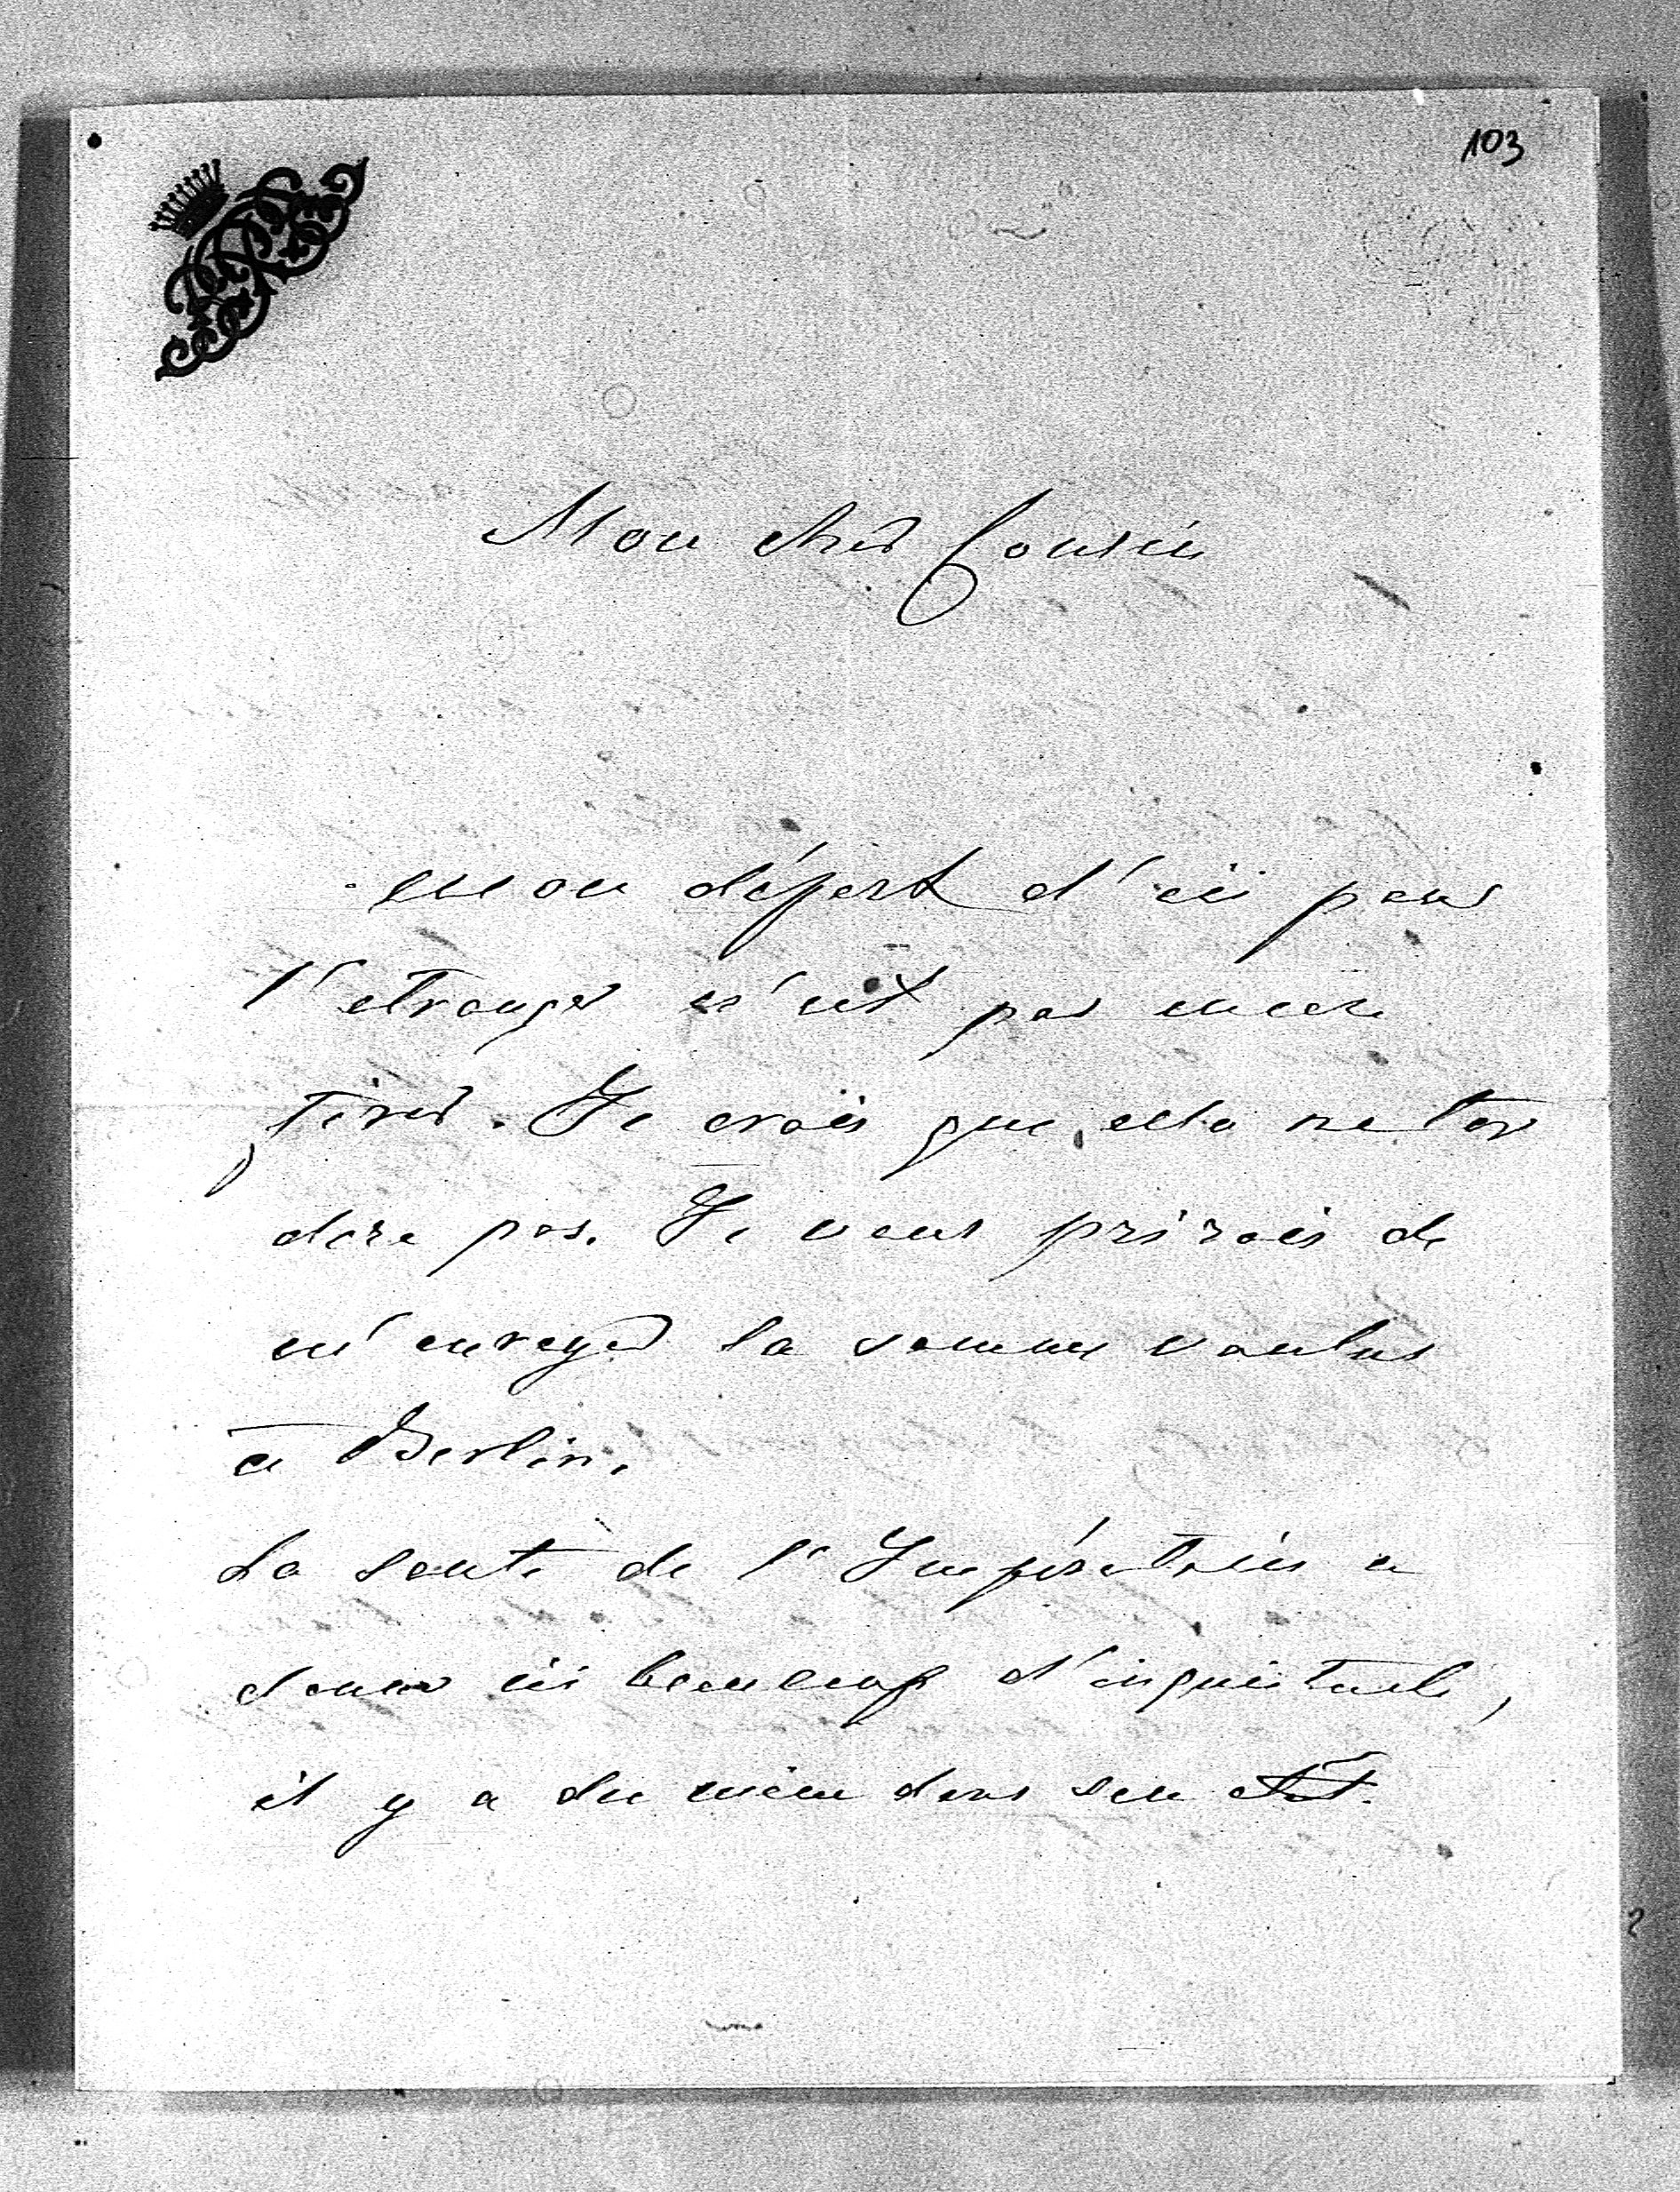 103
Mon cher Cousin
Mon départ d'ici pour
l'etranger n'est pas encore
. Je crois que cela ne tar
dera pas. Je vous prirais de
m'envoyer la somme voulue
à Berlin.
La santé de l'Impératrice a
donné ici beaucoup d'inquietude,
il y a du mieu dans son état.